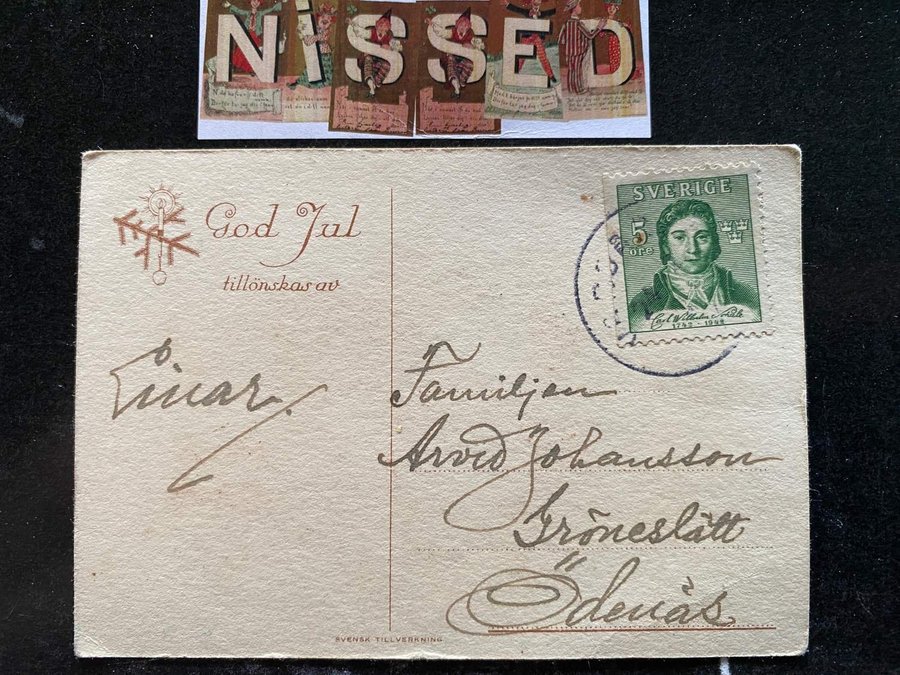 NISSED
God Jul
tillönskas av
Einar.
SVERIGE
5
öre
Carl Wilhelm Scheele
1742 - 1942
Familjen
Arvid Johansson
Gröneslätt
Ödenäs
SVENSK TILLVERKNING